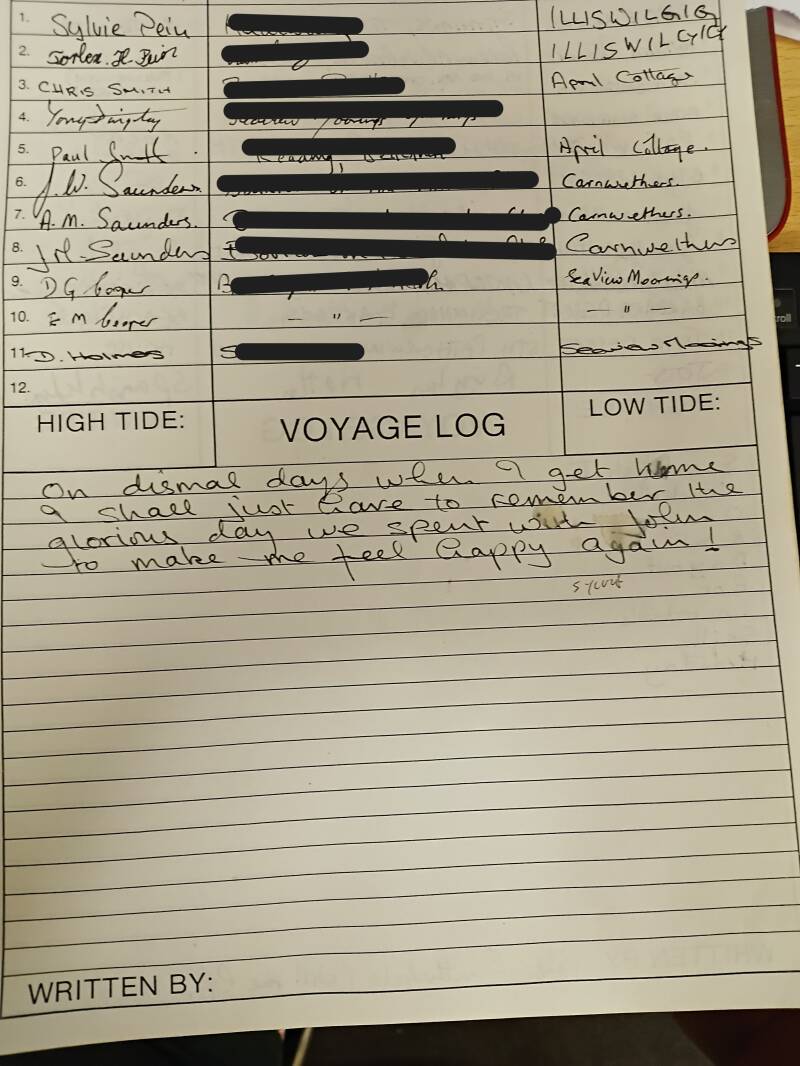 1. Sylvie Pein ILLISWILGIG
2. Pein ILLISWILGIG
3. CHRIS SMITH April Cottage
4. Tony
5. Paul Smith. April Cottage.
6. J.W. Saunders. Carnwethers.
7. A.M. Saunders. Carnwethers.
8. J M. Saunders Carnwethers
9. D G Cooper SeaView Moorings.
10. E M Cooper — " — — " —
11. D. Holmes Seaview Moorings
12.
HIGH TIDE: VOYAGE LOG LOW TIDE:
On dismal days when I get home
I shall just have to remember the
glorious day we spent with John
to make me feel happy again!
SYLVIE
WRITTEN BY: